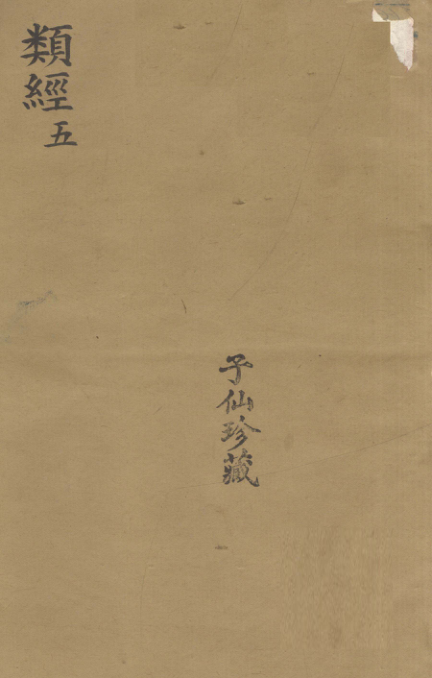 類經五
子仙珍藏